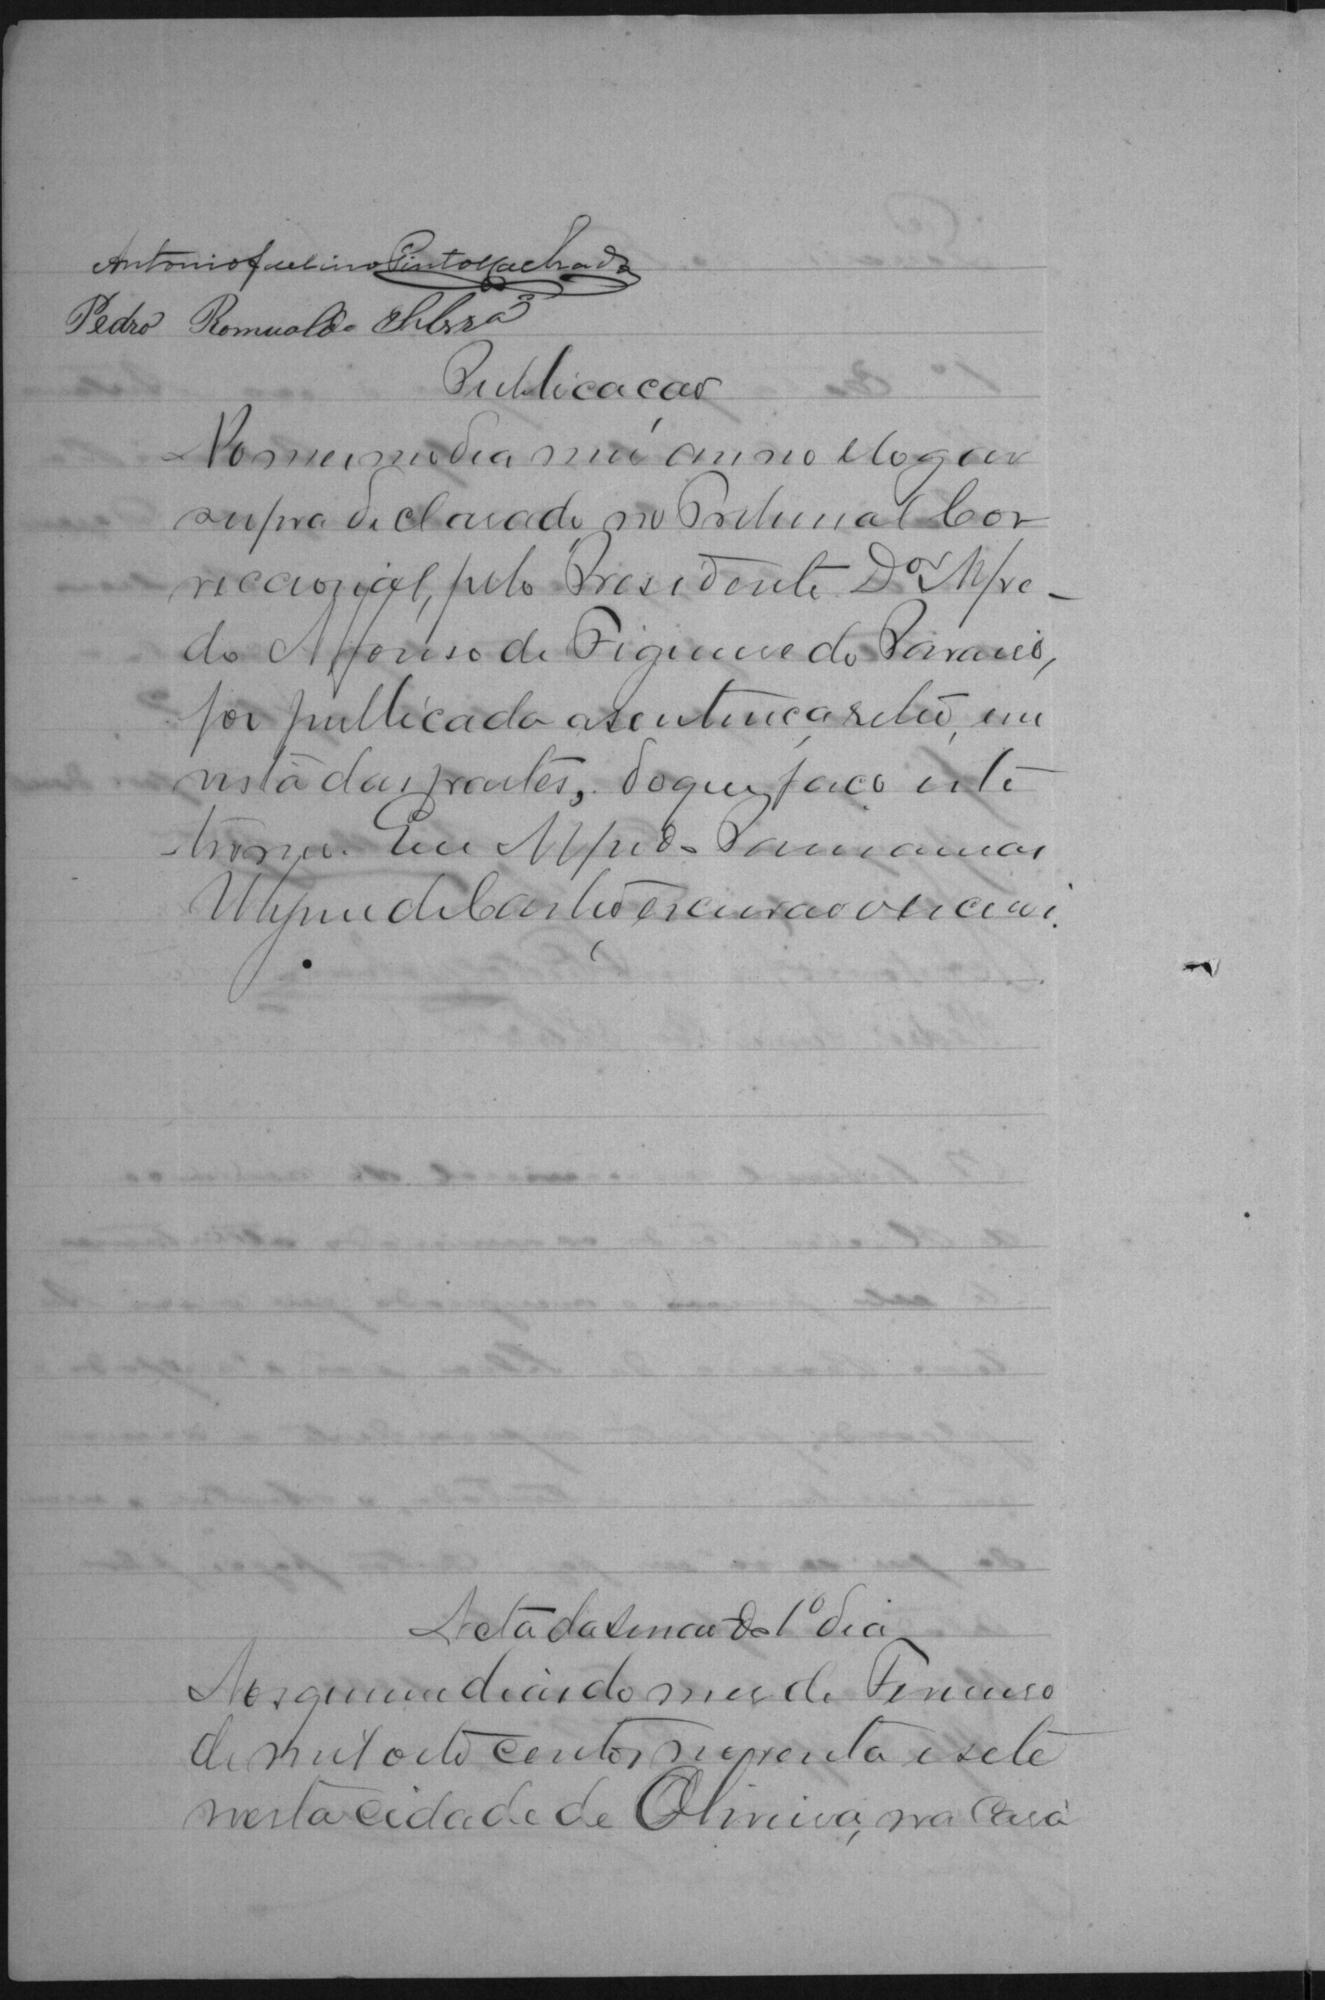 Antonio Juelino Pinto Machado
Pedro Romualdo
Publicação
No mesmo dia mez anno e logar
supra declarado, no Tribunal Cor
reccional, pelo Presidente Dor Alfre-
do Affonso de Figueiredo Paraiso,
foi publicada a sentença retro, em
vista das partes, do que, faço este
termo. Eu Alfredo
de Castro escrivão o escrevi.
Acta da sessão do 1º dia
Aos quinze dias do mez de Fevereiro
de mil oito centos noventa e sete
nesta cidade de Oliveira, na Casa